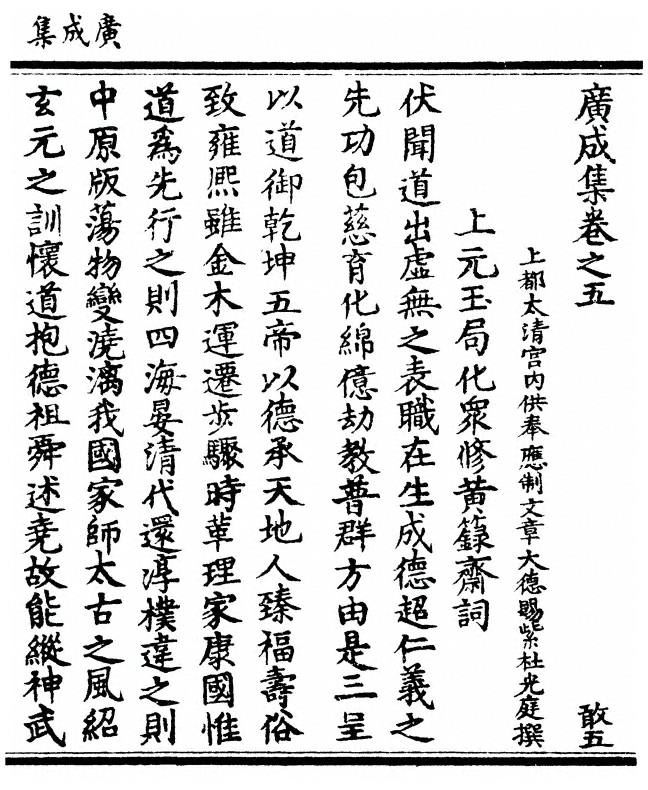 廣成集
廣成集卷之五 敢五
上都太清宮內供奉應制文章大德賜紫杜光庭撰
上元玉局化衆修黃籙齋詞
伏聞道出虛無之表職在生成德超仁義之
先功包慈育化綿億劫教普群方由是三皇
以道御乾坤五帝以德承天地人臻福壽俗
致雍熈雖金木運遷步驟時革理家康國惟
道爲先行之則四海晏清代還淳樸違之則
中原版蕩物變澆漓我國家師太古之風紹
玄元之訓懷道抱德祖舜述堯故能縱神武